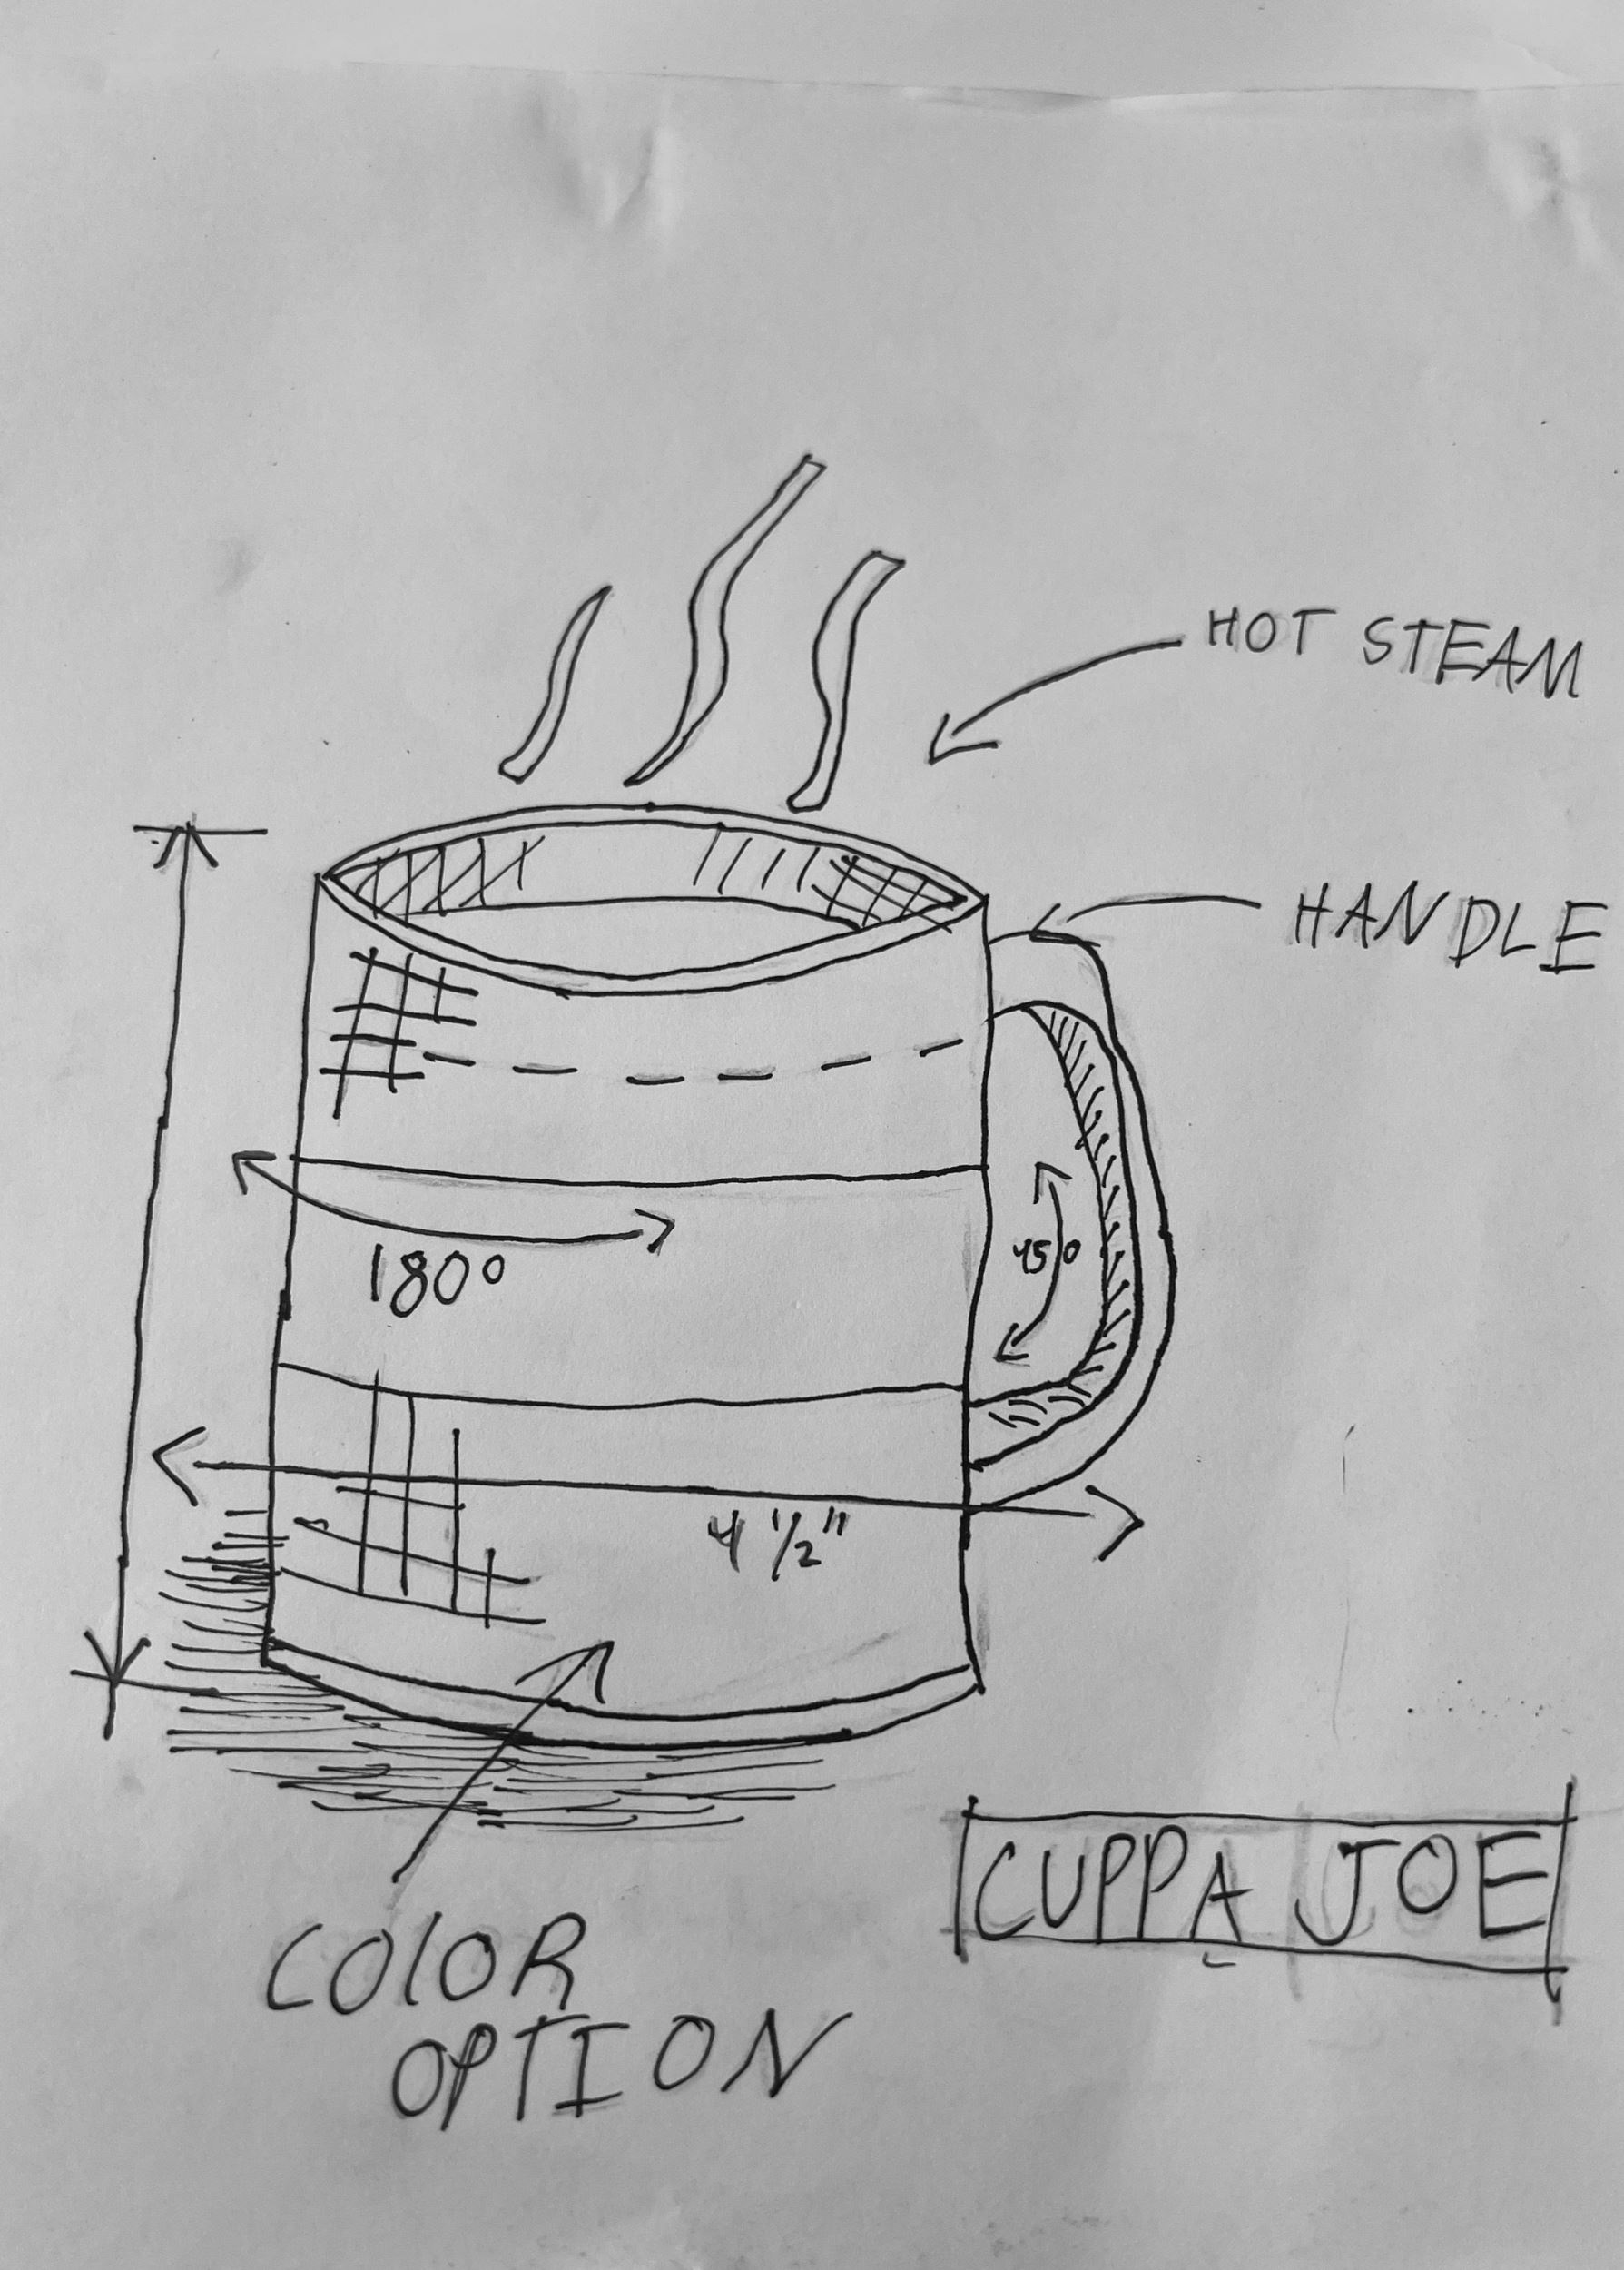 HOT STEAM
HANDLE
180°
45°
4 1/2"
CUPPA JOE
COLOR
OPTION